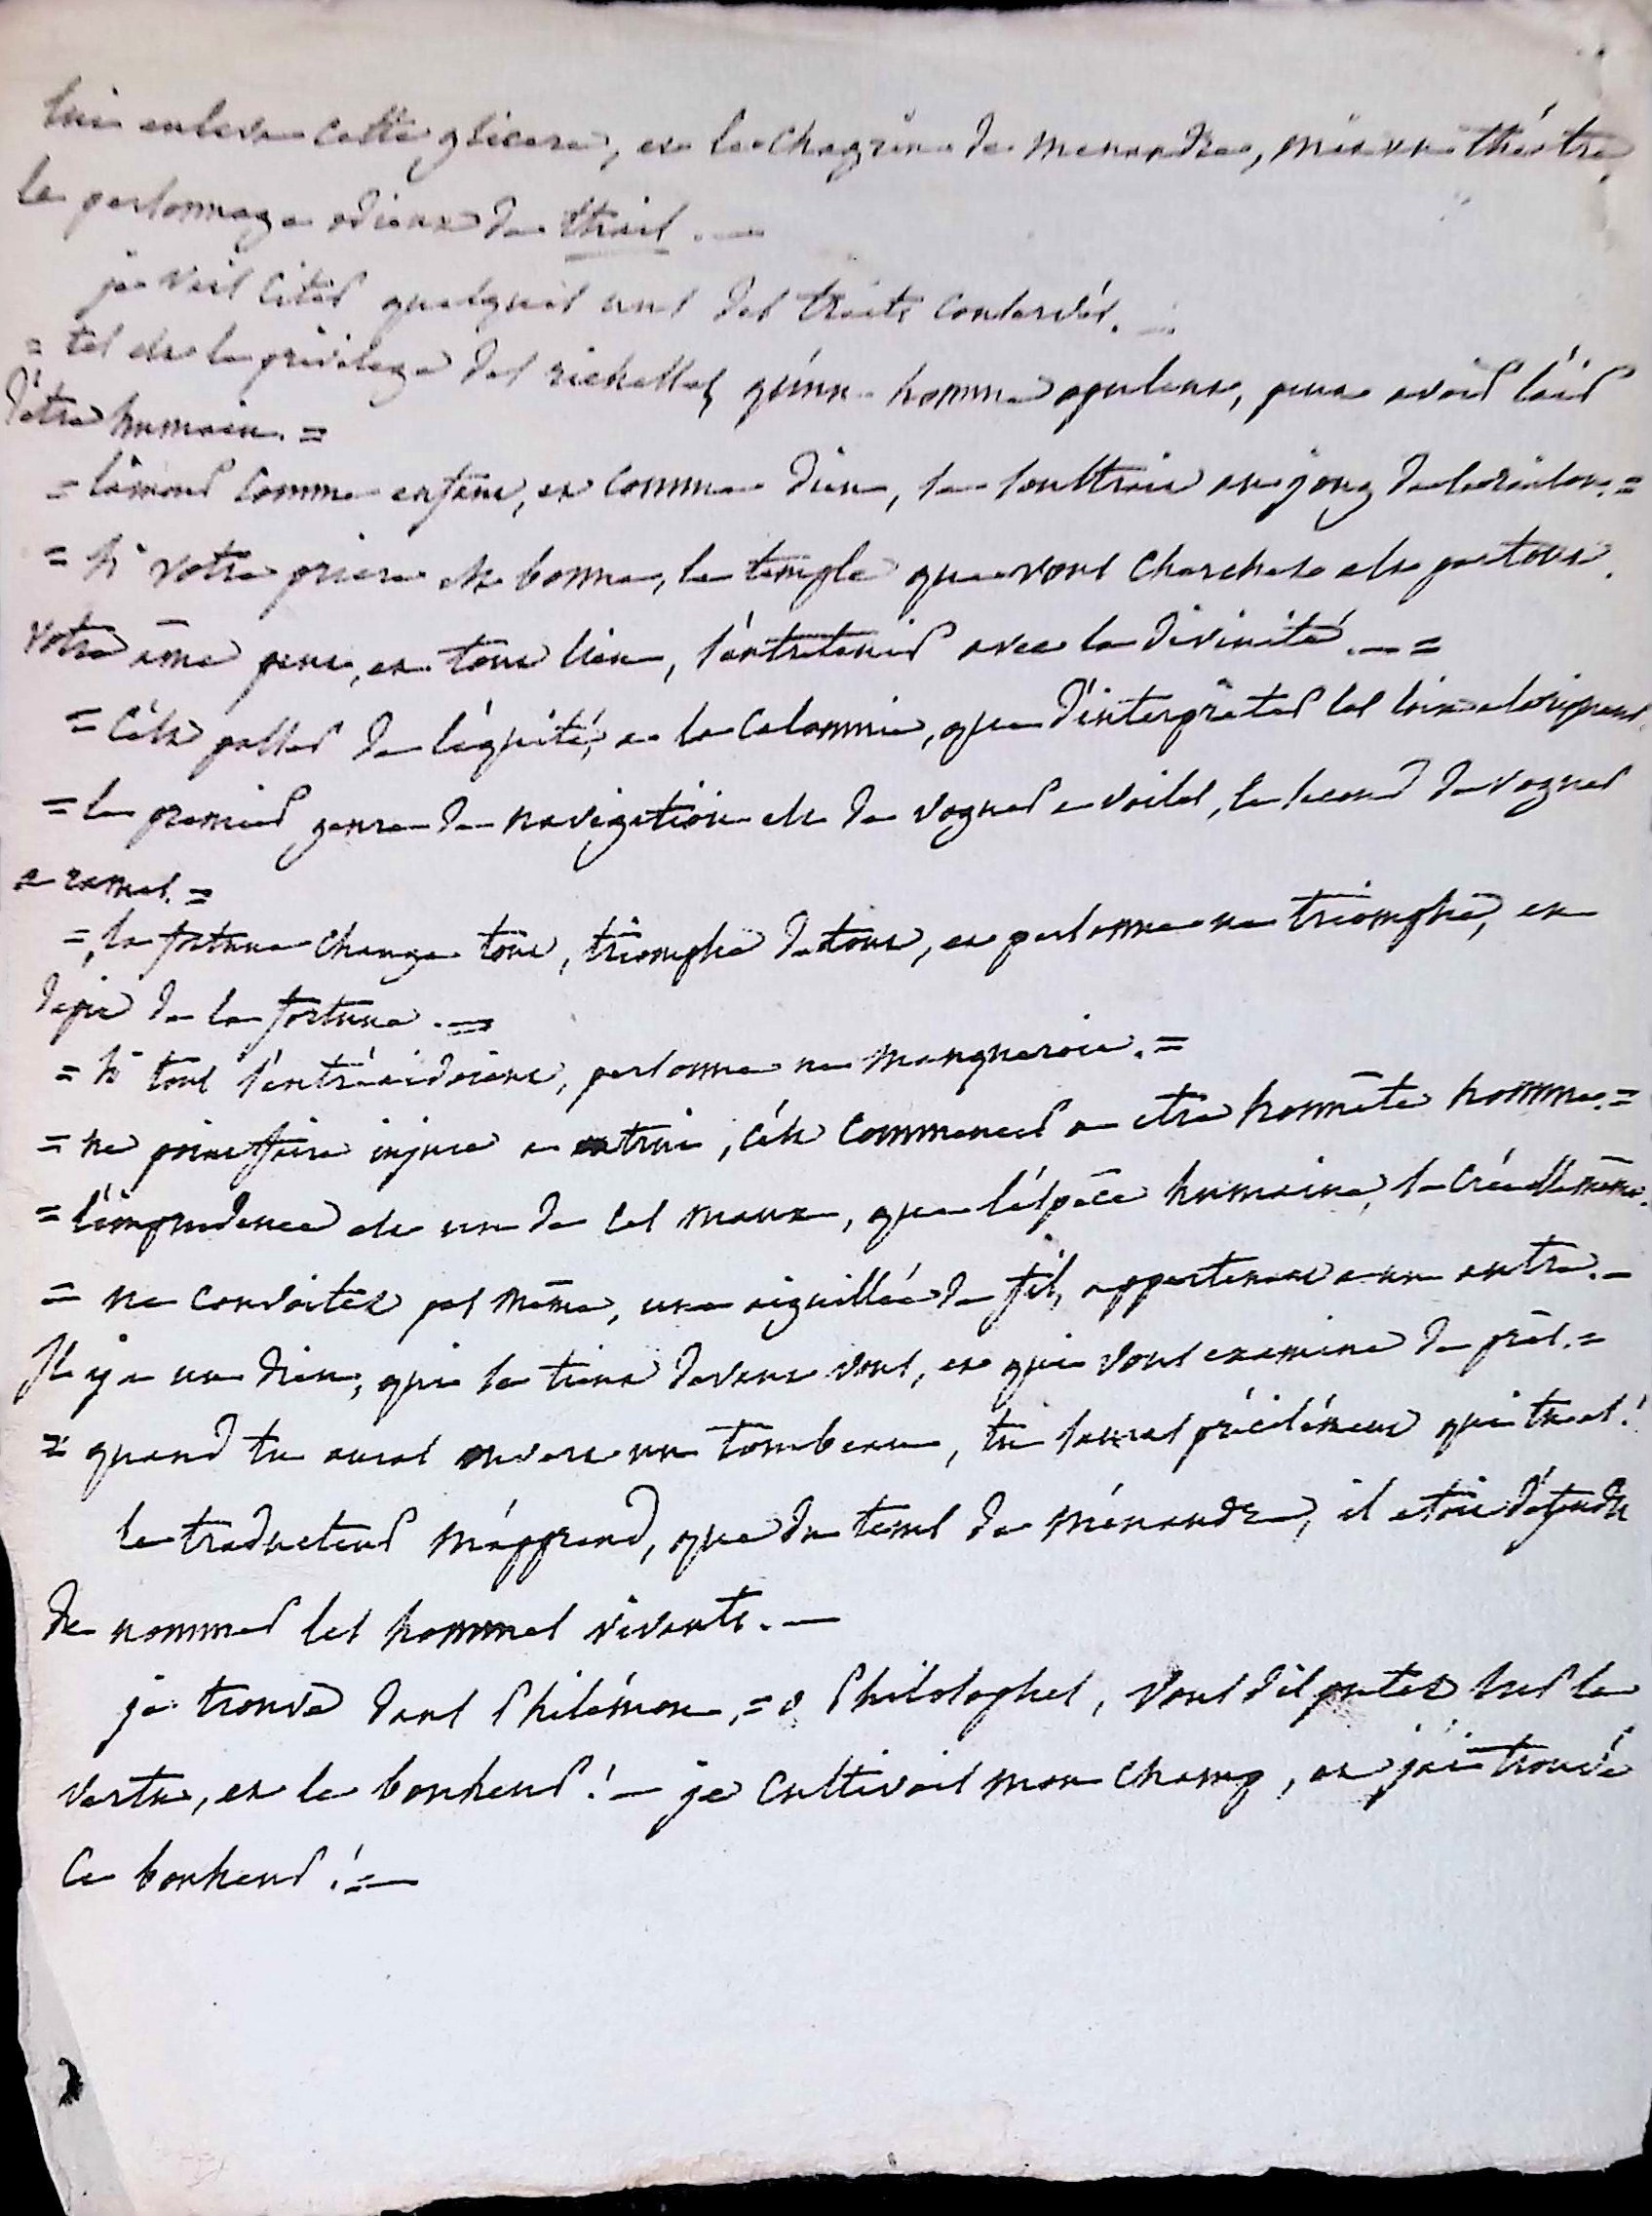 lui enleva cette glicere, et le chagrin de menandre, mit au théatre,
le personnage odieux de thais. —
je vais citer quelques uns des traits conservés. —
= tel est le privilege des richesses, qu'un homme opulent, peut avoir l'air
d'être humain. =
= l'amour comme enfant, et comme dieu, se soustrait au joug de la raison. =
= si votre priere est bonne, le temple que vous cherchez est partout.
votre âme peut, en tout lieu, s'entretenir avec la divinité. — =
= c'est passer de l'équité, a la calomnie, que d'interpréter les loix
= le premier genre de navigation est de voguer a voiles, le second de voguer
a rames. =
= la fortune change tout, triomphe de tout, et personne ne triomphe, en
depit de la fortune. —
= si tous s'entr'aidoient, personne ne manqueroit. =
= ne point faire injure a autrui, c'est commencer a etre honnête homme. =
= l'imprudence est un de ces maux, que l'éspèce humaine, se crée elle même.
= ne convoitez pas même, une aiguillée de fil, appartenant a un autre. —
Il y a un dieu, qui se tient devant vous, et qui vous examine de près. =
= quand tu auras ouvert un tombeau, tu sauras précisément qui tu es!
le traducteur m'apprend, que du tems de ménandre, il etoit défendu
de nommer les hommes vivants. —
je trouve dans Philémon, = o Philosophes, vous disputez sur la
vertu, et le bonheur! — je cultivois mon champ, et j'ai trouvé
ce bonheur! = —